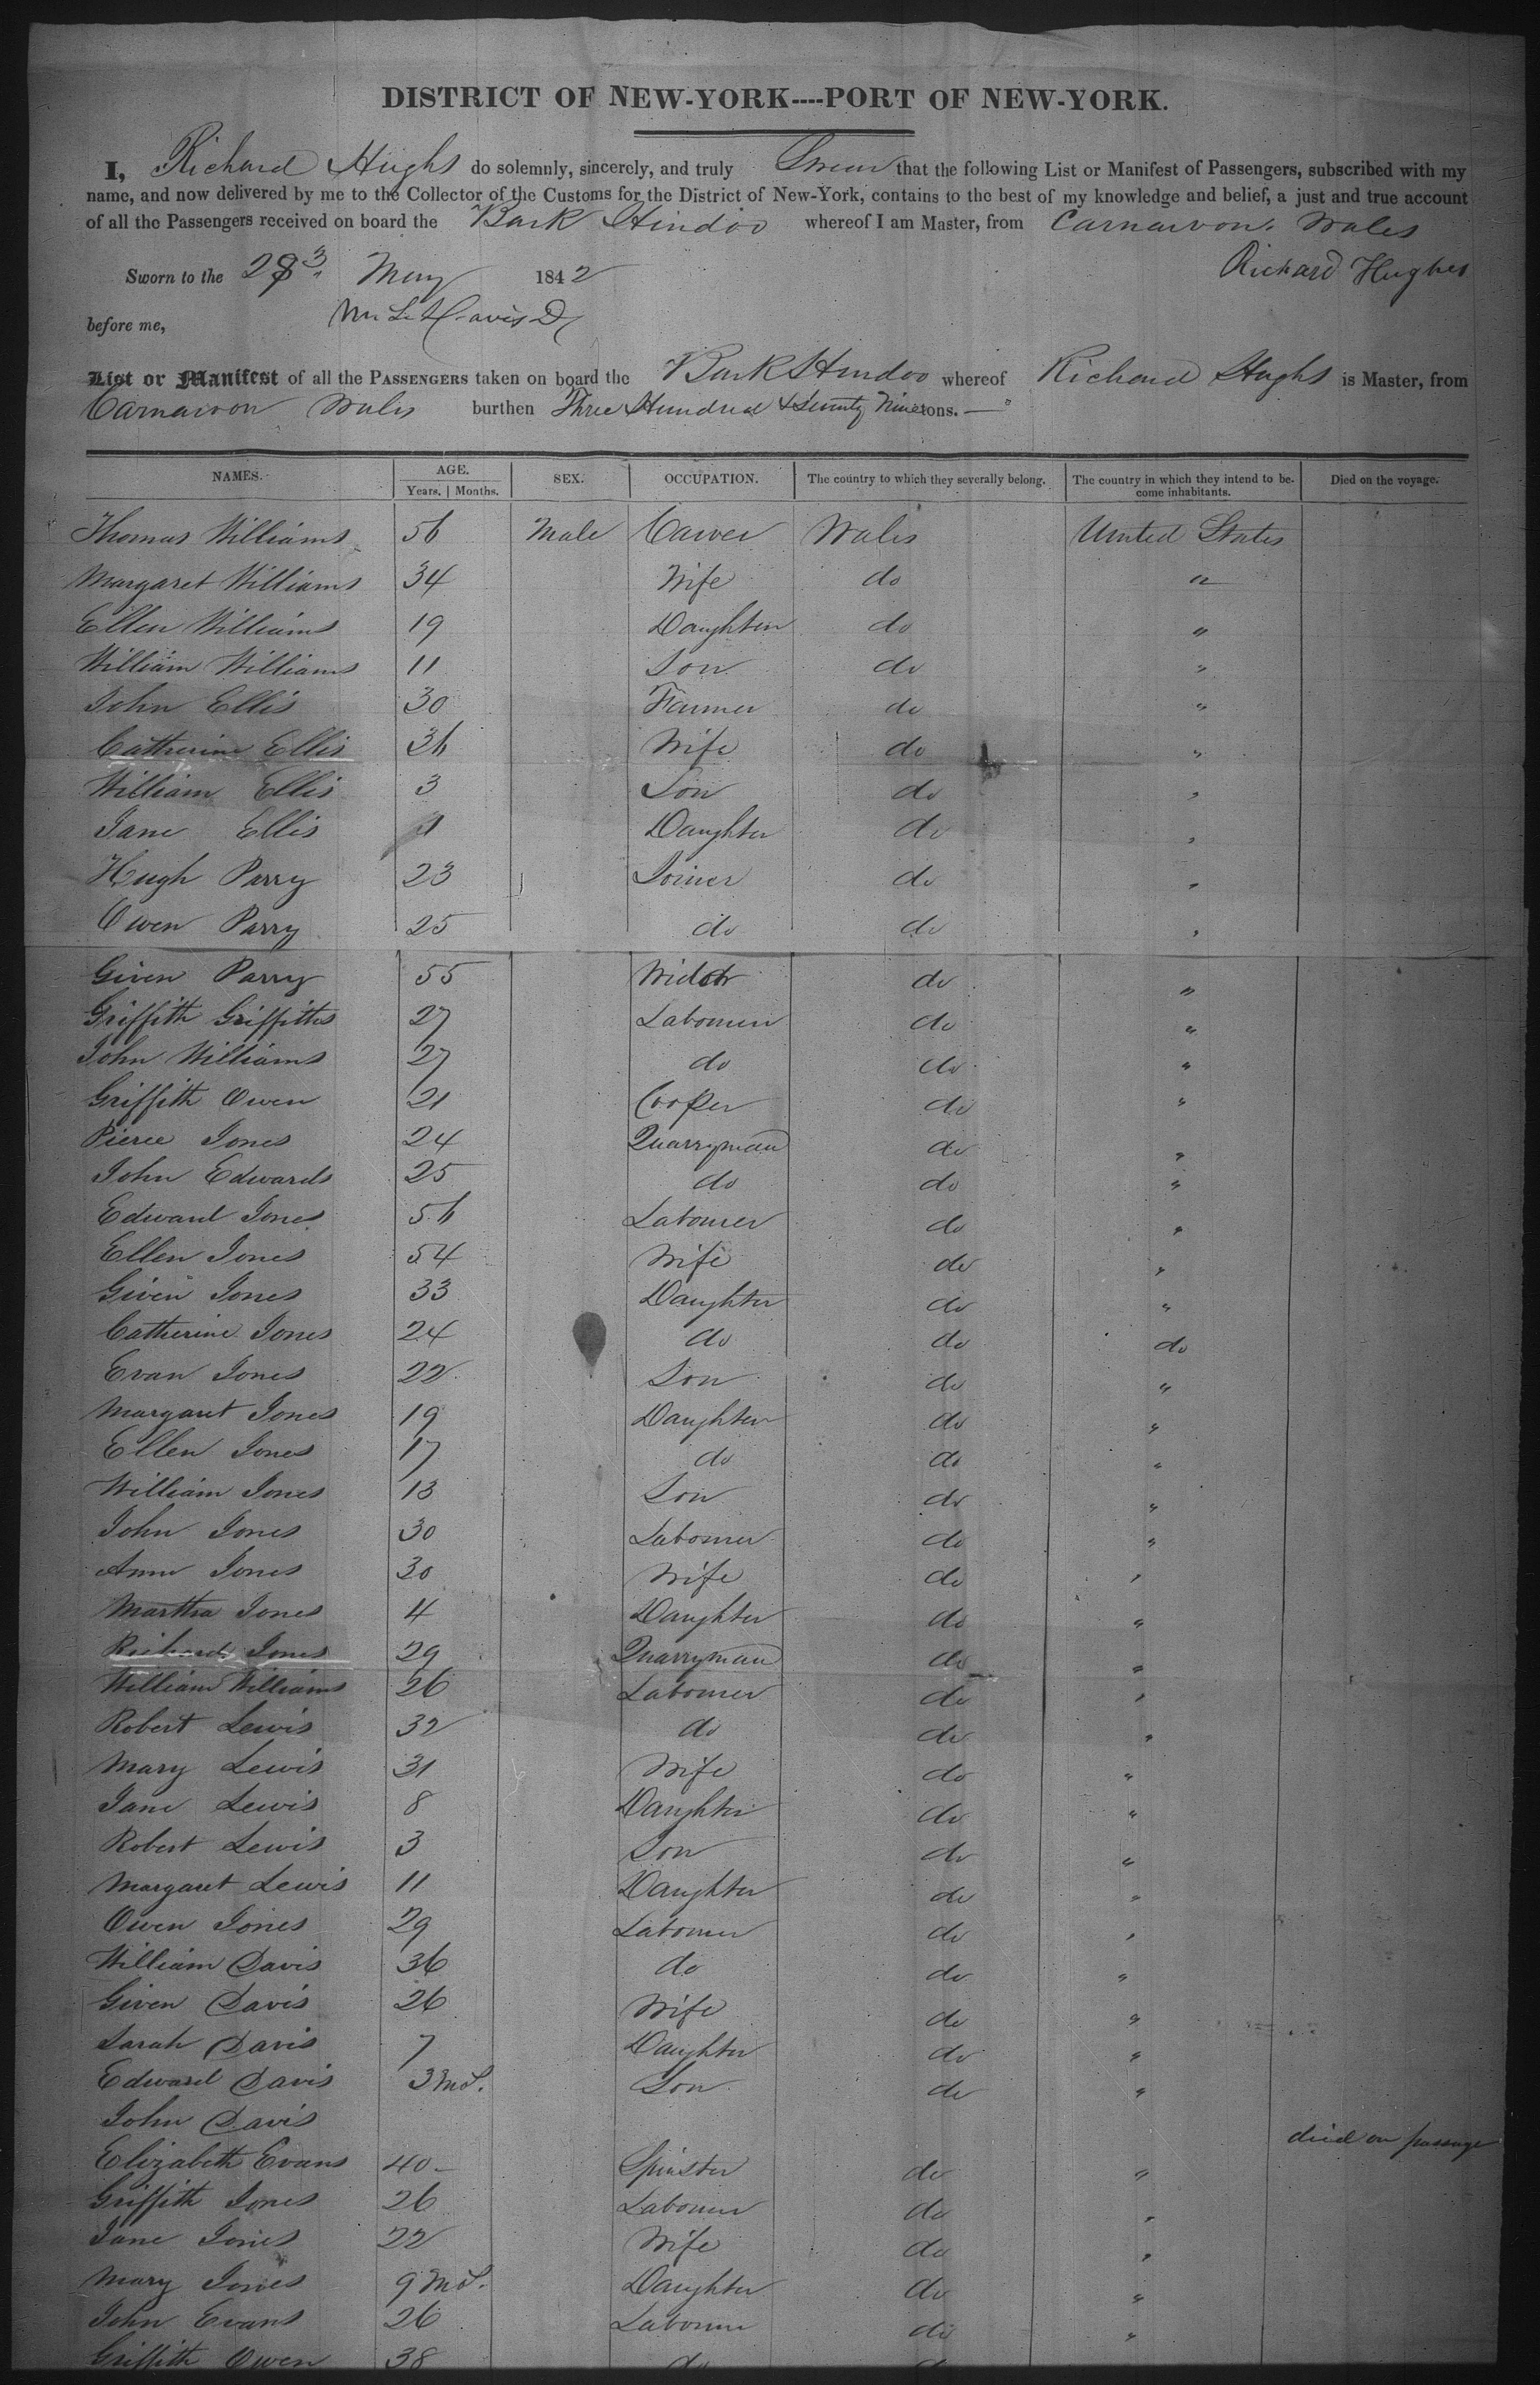 DISTRICT OF NEW-YORK----PORT OF NEW-YORK.
I, Richard Hughs do solemnly, sincerely, and truly Swear that the following List or Manifest of Passengers, subscribed with my
name, and now delivered by me to the Collector of the Customs for the District of New-York, contains to the best of my knowledge and belief, a just and true account
of all the Passengers received on board the Bark Hindoo whereof I am Master, from Carnarvon. Wales
Sworn to the 23 May 1842 Richard Hughes
before me,
List or Manifest of all the PASSENGERS taken on board the Bark Hindoo whereof Richard Hughs is Master, from
Carnarvon Wales burthen Three Hundred & Seventy Nine tons.
NAMES. AGE. SEX. OCCUPATION. The country to which they severally belong. The country in which they intend to be- Died on the voyage.
Years. | Months. come inhabitants.
Thomas Williams 56 Male Carver Wales United States
Margaret Williams 34 Wife do "
Ellen Williams 19 Daughter do "
William Williams 11 Son do "
John Ellis 30 Farmer do "
Catherine Ellis 36 Wife do "
William Ellis 3 Son do "
Jane Ellis 1 Daughter do "
Hugh Parry 23 Joiner do "
Owen Parry 25 do do "
Given Parry 55 Widow do "
Griffith Griffiths 27 Labourer do "
John Williams 27 do do "
Griffith Owen 21 Cooper do "
Pierce Jones 24 Quarryman do "
John Edwards 25 do do "
Edward Jones 56 Labourer do "
Ellen Jones 54 Wife do "
Given Jones 33 Daughter do "
Catherine Jones 24 do do do
Evan Jones 22 Son do "
Margaret Jones 19 Daughter do "
Ellen Jones 17 do do "
William Jones 13 Son do "
John Jones 30 Labourer do "
Anne Jones 30 Wife do "
Martha Jones 4 Daughter do "
Richard Jones 29 Quarryman do "
William Williams 26 Labourer do "
Robert Lewis 32 do do "
Mary Lewis 31 Wife do "
Jane Lewis 8 Daughter do "
Robert Lewis 3 Son do "
Margaret Lewis 11 Daughter do "
Owen Jones 29 Labourer do "
William Davis 36 do do "
Given Davis 26 Wife do "
Sarah Davis 7 Daughter do "
Edward Davis 3 Mos. Son do "
John Davis died on passage
Elizabeth Evans 40 Spinster do "
Griffith Jones 26 Labourer do "
Jane Jones 22 Wife do "
Mary Jones 9 Mos. Daughter do "
John Evans 26 Labourer do "
Griffith Owen 38 do